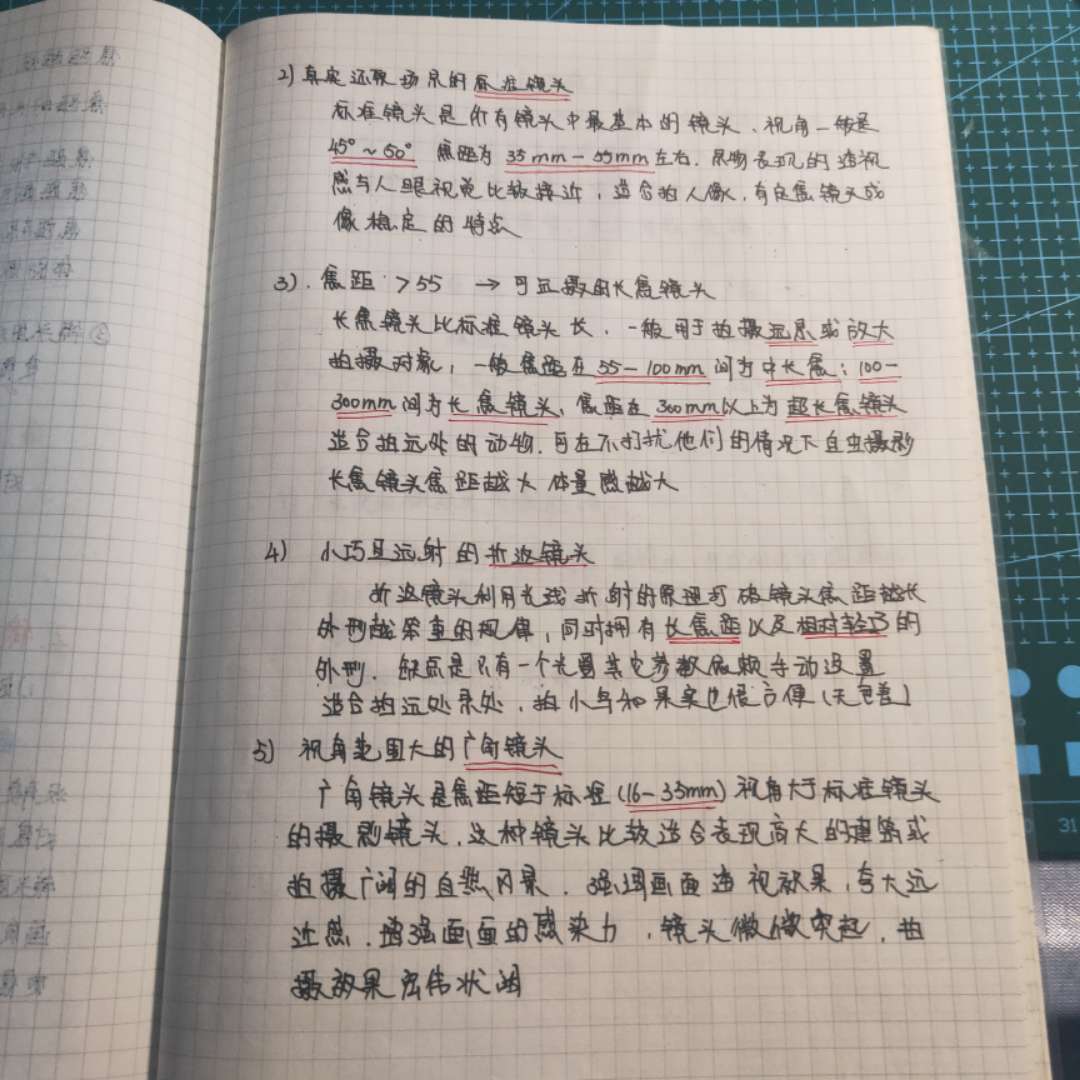 2) 真实还原场景的标准镜头
标准镜头是所有镜头中最基本的镜头、视角一般是
45°~50° 焦距为 35mm-55mm左右、景物表现的透视
感与人眼视觉比较接近，适合拍人像、有定焦镜头成
像稳定的特点
3). 焦距 >55 → 可远摄的长焦镜头
长焦镜头比标准镜头长、一般用于拍摄远景或放大
拍摄对象，一般焦距在55-100mm间为中长焦；100-
300mm间为长焦镜头、焦距在300mm以上为超长焦镜头
适合拍远处的动物、可在不打扰他们的情况下自由摄影
长焦镜头焦距越大 体量感越大
4) 小巧且远射的折返镜头
折返镜头利用光线折射的原理打破镜头焦距越长
外形越笨重的规律，同时拥有长焦距以及相对轻巧的
外形、缺点是只有一个光圈其它参数依赖手动设置
适合拍远处景处、拍小鸟和果实也很方便(无色差)
5) 视角范围大的广角镜头
广角镜头是焦距短于标准(16-35mm) 视角大于标准镜头
的摄影镜头、这种镜头比较适合表现高大的建筑或
拍摄广阔的自然风景、强调画面透视效果，夸大远
近感、增强画面的感染力、镜头微微突起、拍
摄效果宏伟状阔
31